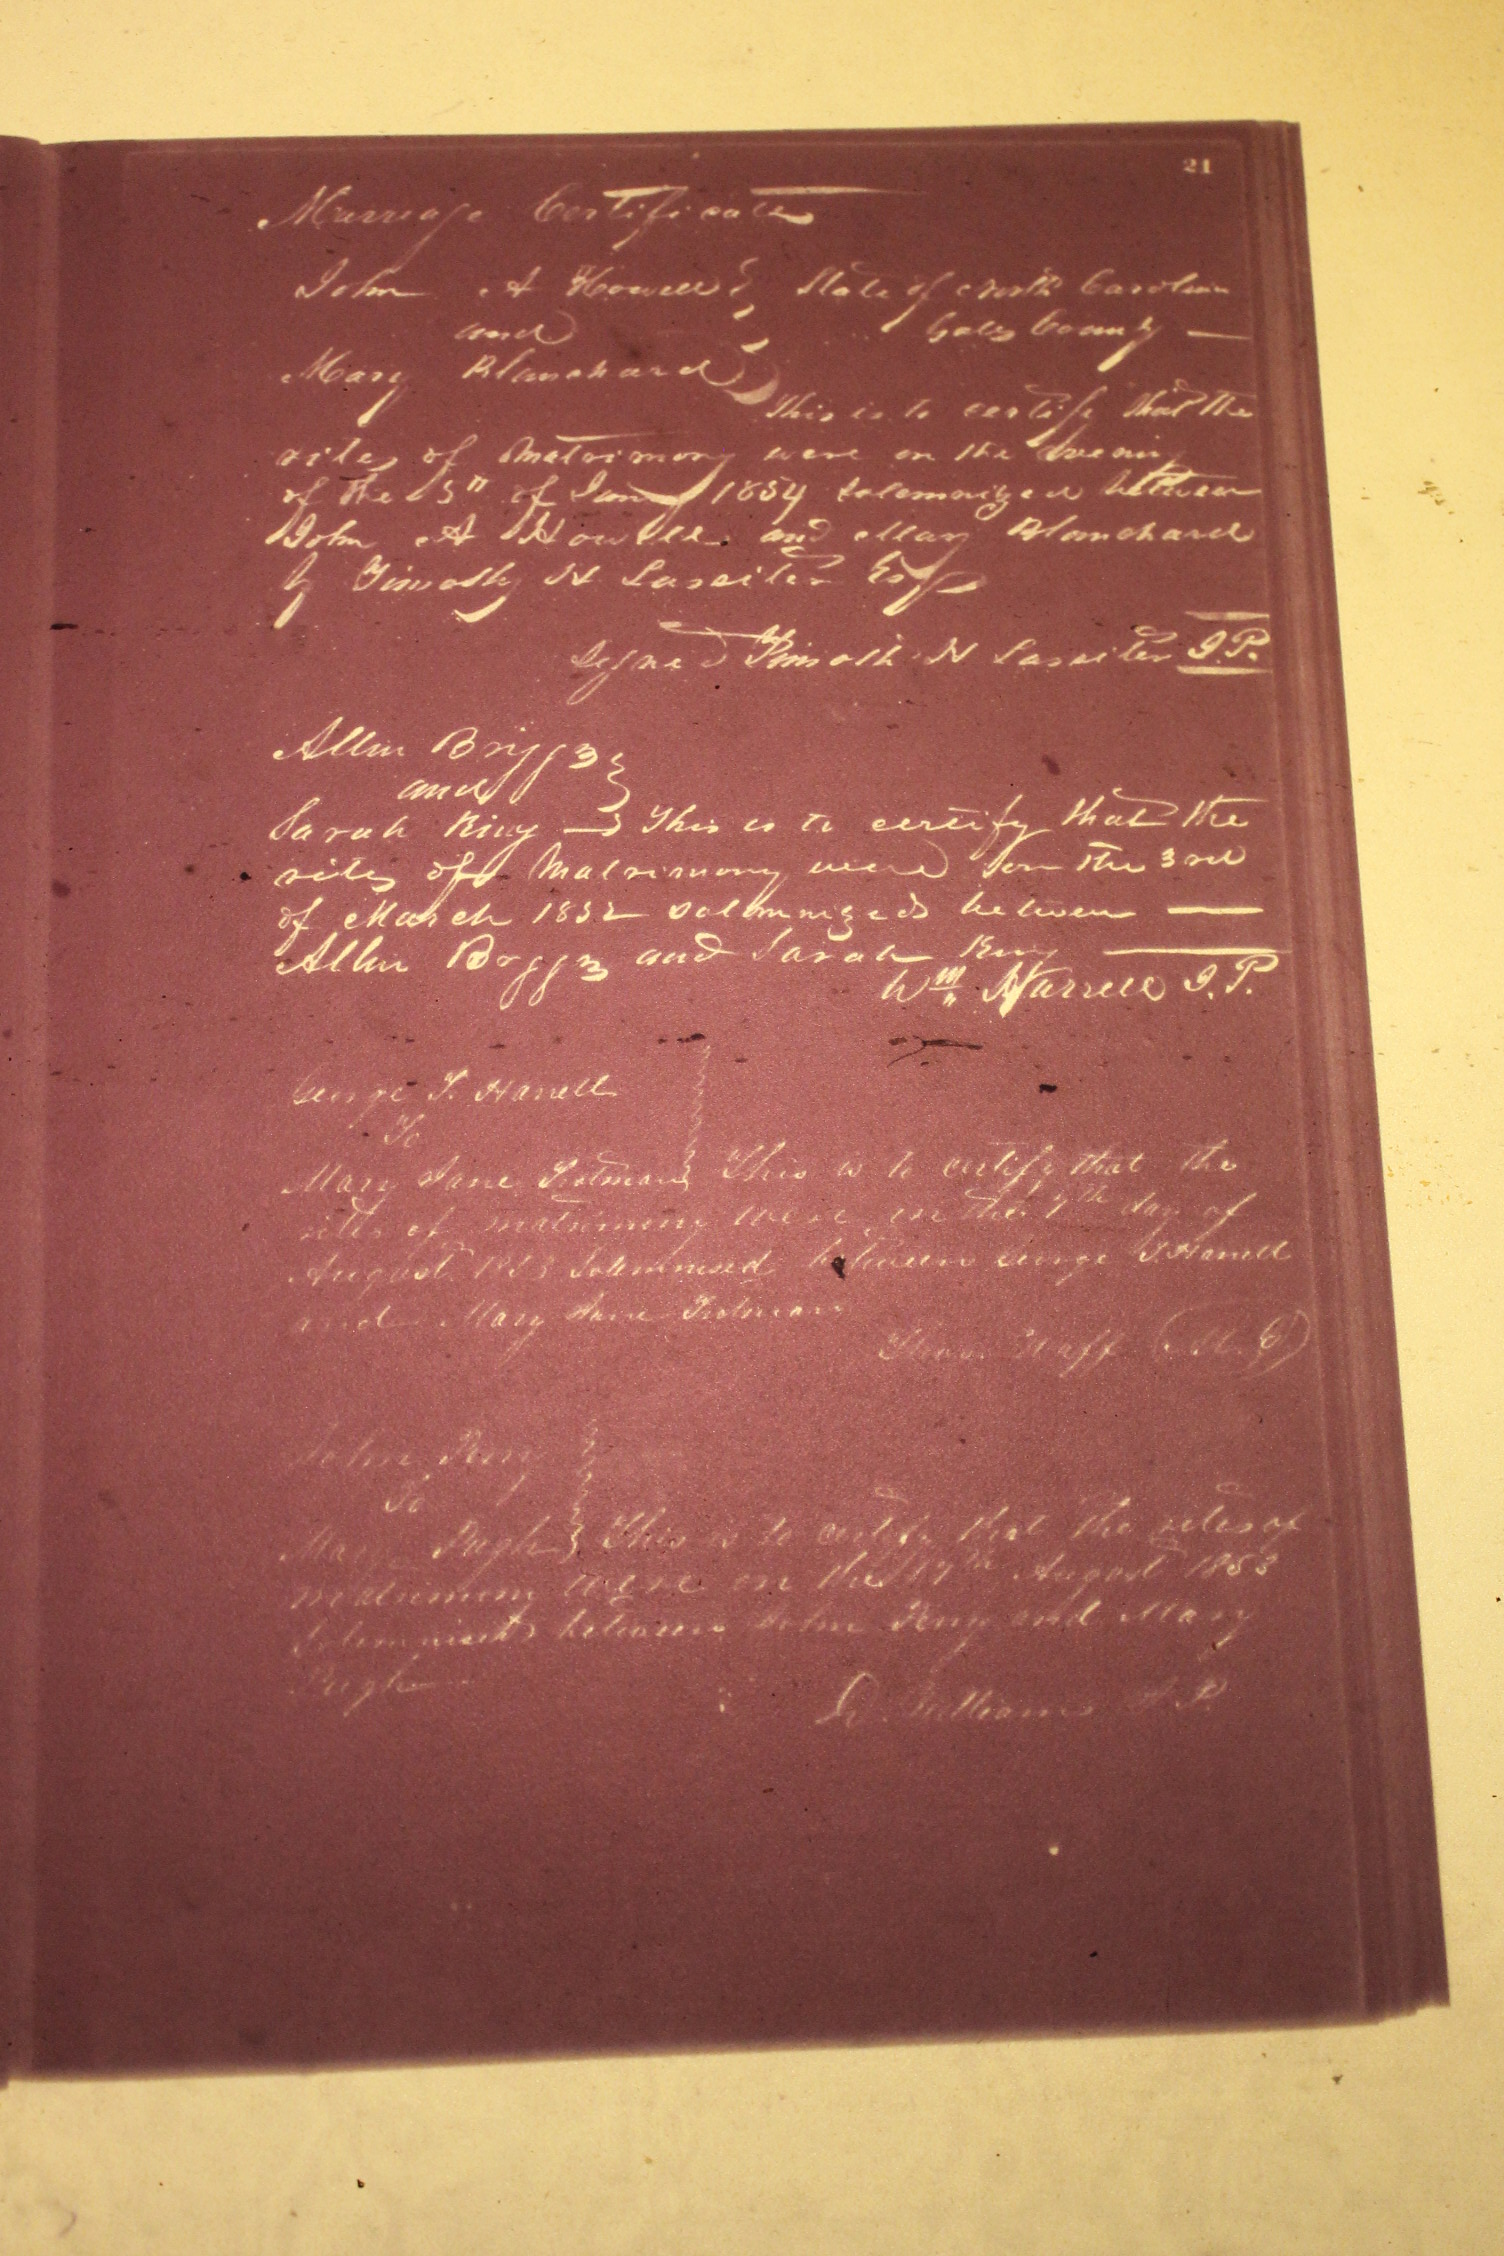 21
Marriage Certificate
John A Howell State of North Carolina
and Gates County —
Mary Blanchard
This is to certify that the
rites of Matrimony were on the Evening
of the 5th of Jany 1854 solemnized between
John A Howell and Mary Blanchard
by Timothy H Lassiter Esq
Signed Timoth H Lassiter J.P.
Allen Briggs
and
Sarah King — This is to certify that the
rites of Matrimony were on the 3rd
of March 1852 solemnized between —
Allen Boggs and Sarah King —
Wm Harrell J.P.
George T. Harrell
To
Mary Jane Trotman This is to certify that the
rites of matrimony were on the day of
August 1853 Solemnised between George T. Harrell
and Mary Jane Trotman
Thos. Waff (M. G)
John Perry
To
Mary Pugh This is to certify that the rites of
matrimony were on the 17th August 1853
Solemnised between John Perry and Mary
Pugh
Williams J. P.